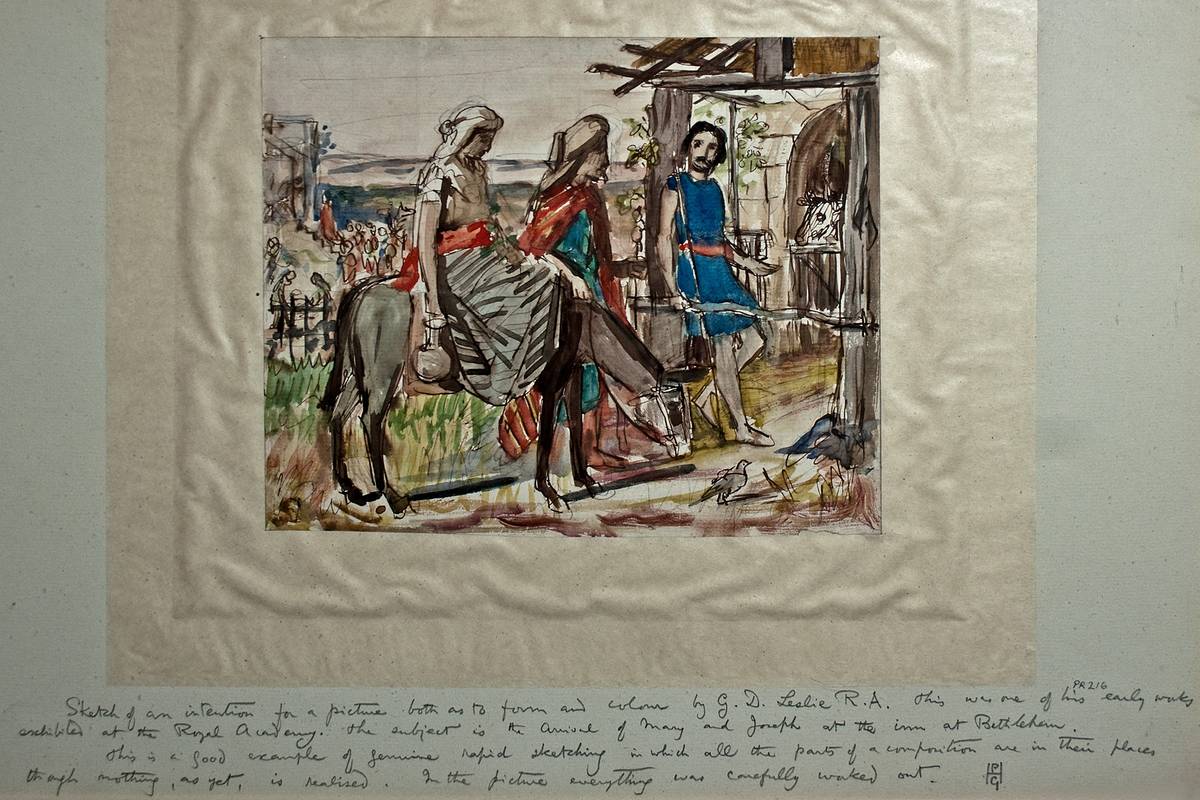 PR 216
Sketch of an intention for a picture both as to form and colour by G. D. Leslie R.A. This was one of his early works
exhibited at the Royal Academy. The subject is the arrival of Mary and Joseph at the inn at Bethlehem.
This is a good example of genuine rapid sketching in which all the parts of a composition are in their places
though nothing, as yet, is realised. In the picture everything was carefully worked out.